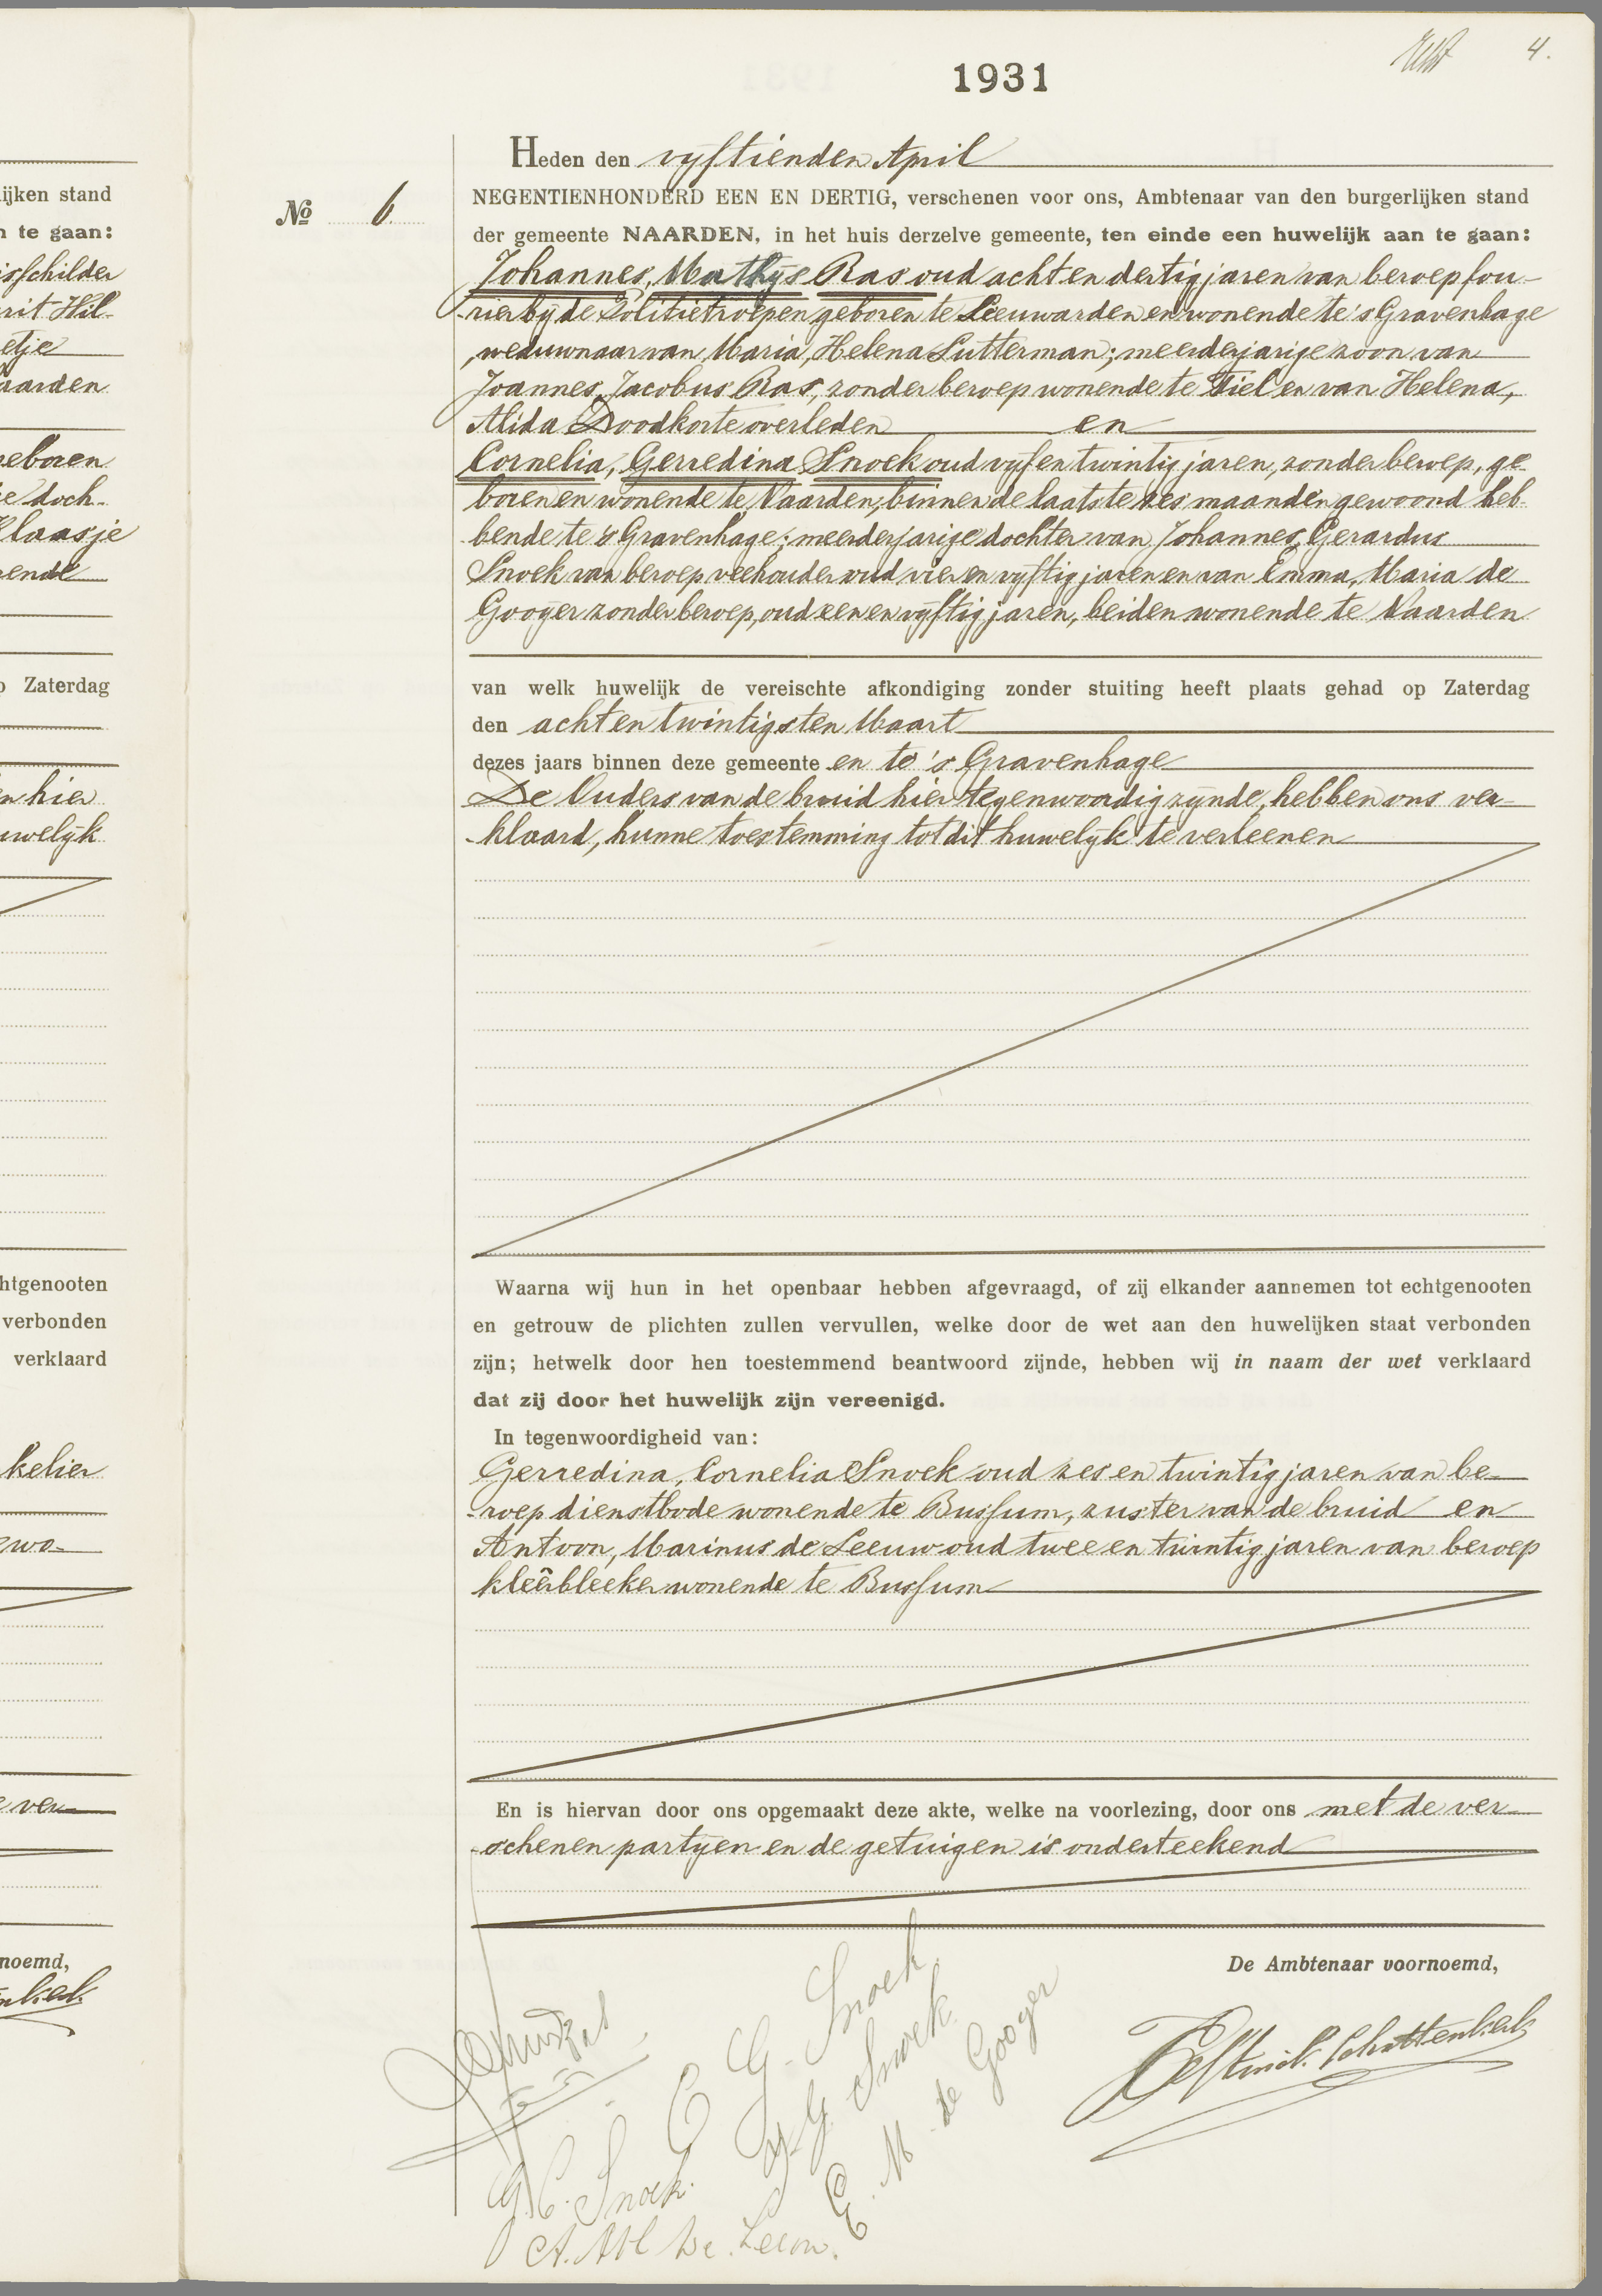 4.
1931
Heden den vijftienden April
NEGENTIENHONDERD EEN EN DERTIG, verschenen voor ons, Ambtenaar van den burgerlijken stand
№ 6
der gemeente NAARDEN, in het huis derzelve gemeente, ten einde een huwelijk aan te gaan:
Johannes, Mathijs Ras oud acht en dertig jaren van beroep fou-
-rier bij de Politietroepen geboren te Leeuwarden en wonende te 's Gravenhage
, weduwnaar van Maria, Helena Sutterman; meerderjarige zoon van
Joannes, Jacobus Ras, zonder beroep wonende te Tiel en van Helena,
Alida Doodkorte overleden en
Cornelia, Gerredina Snoek oud vijf en twintig jaren, zonder beroep, ge-
boren en wonende te Naarden, binnen de laatste zes maanden gewoond heb-
-bende te 's Gravenhage; meerderjarige dochter van Johannes, Gerardus
Snoek van beroep veehouder oud vier en vijftig jaren en van Emma, Maria de
Gooijer zonder beroep, oud een en vijftig jaren, beiden wonende te Naarden
van welk huwelijk de vereischte afkondiging zonder stuiting heeft plaats gehad op Zaterdag
den acht en twintigsten Maart
dezes jaars binnen deze gemeente en te 's Gravenhage
De Ouders van de bruid hier tegenwoordig zijnde, hebben ons ver-
-klaard, hunne toestemming tot dit huwelijk te verleenen
Waarna wij hun in het openbaar hebben afgevraagd, of zij elkander aannemen tot echtgenooten
en getrouw de plichten zullen vervullen, welke door de wet aan den huwelijken staat verbonden
zijn; hetwelk door hen toestemmend beantwoord zijnde, hebben wij in naam der wet verklaard
dat zij door het huwelijk zijn vereenigd.
In tegenwoordigheid van:
Gerredina, Cornelia Snoek oud zes en twintig jaren van be-
-roep dienstbode wonende te Bussum, zuster van de bruid en
Antoon, Marinus de Leeuw oud twee en twintig jaren van beroep
kleêrbleeker wonende te Bussum
En is hiervan door ons opgemaakt deze akte, welke na voorlezing, door ons met de ver-
-schenen partijen en de getuigen is onderteekend
De Ambtenaar voornoemd,
C G. Snoek
J. G. Snoek
E. M. de Gooijer
G. C. Snoek.
A. M de Leeuw.
ijken stand
n te gaan:
isschilder
rit Hil-
etje
aarden
eboren
e doch-
Klaasje
ende
p Zaterdag
n hier
uwelijk
htgenooten
verbonden
verklaard
kelier
wo-
ver-
noemd,